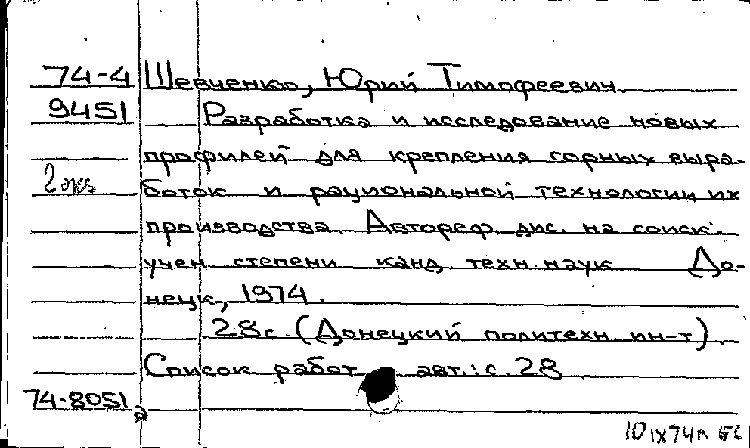 74-4 Шевченко, Юрий Тимофеевич.
9451 Разработка и исследование новых
профилей для крепления горных выра-
2 экз. боток и рациональной технологии их
производства. Автореф. дис. на соиск.
учен. степени канд. техн. наук. До-
нецк, 1974.
28с. (Донецкий политехн. ин-т)
Список работ авт.: с. 28
74-8051
10 IX 74г.